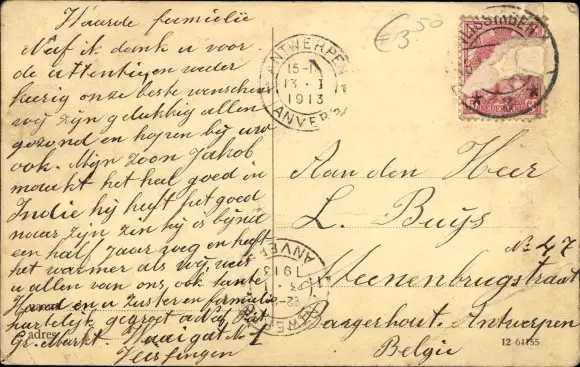 Waarde fumielië
Neef ik dank u voor
de attentigen weder
keerig onze beste wenschen
wij zijn gelukkig allen
gezond en hopen bij uw
ook. Mijn Zoon Jakob
maakt het heel goed in
Indie hij heeft het goed
naar zijn zin hij is bijna
een half Jaar zoog en heeft
het warmer als wij veel
u allen van ons, ook tante
en u Zuster en famielie
hartelijk gegroet a Piet
Gr. Markt
€3,50
ANTWERPEN
15-1
13 · I
1913
ANVERS
VLISSINGEN
Aan den Heer
L. Buijs
No 47
Weenenbrugstraat
Borgerhout. Antwerpen
Belgie
ANVERS
1913
adres
12 64155